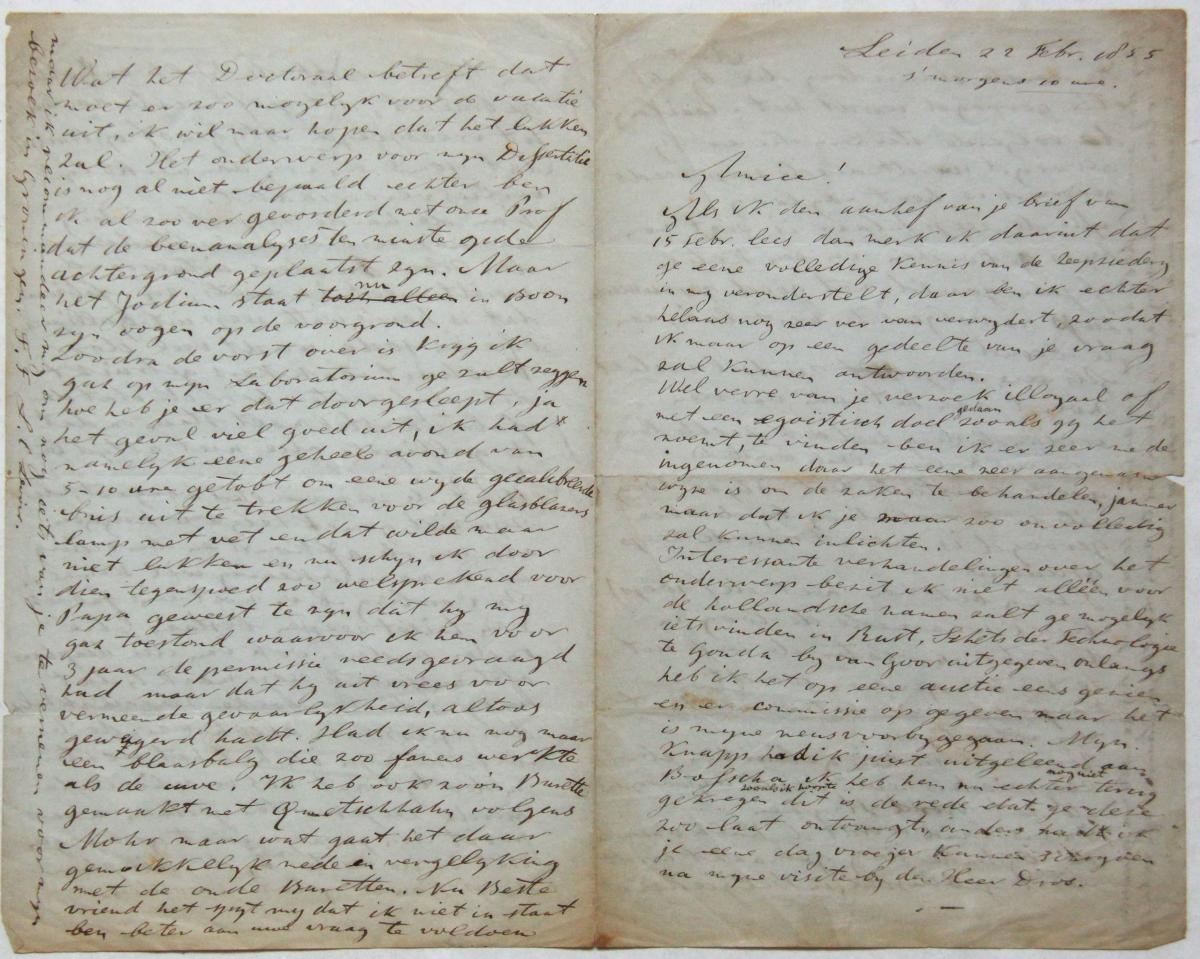 Leiden 22 Febr. 1855
s'morgens 10 ure.
Amice!
Als ik den aanhef van je brief van
15 Febr. lees dan merk ik daaruit dat
ge eene volledige kennis van de zeepziedery
in my veronderstelt, daar ben ik echter
helaas nog zeer ver van verwydert, zoodat
ik maar op een gedeelte van je vraag
zal kunnen antwoorden.
Wel verre van je verzoek illoyaal of
met een egoistisch doel gedaan zooals gy het
noemt, te vinden ben ik er zeer mede
ingenomen daar het eene zeer aangename
wyze is om de zaken te behandelen, jammer
maar dat ik je maar zoo onvolledig
zal kunnen inlichten.
Interessante verhandelingen over het
onderwerp bezit ik niet alléén voor
de hollandsche namen zult ge mogelyk
iets vinden in Rust, Schets der Technologie
te Gouda by van Goor uitgegeven onlangs
heb ik het op eene auctie eens gezien
en er commissie op gegeven maar het
is myne neus voorbygegaan. Myn
Knapp had ik juist uitgeleend aan
Bosscha, ik heb hem nu echter nog niet terug
gekregen zooals ik hoopte dit is de rede dat ge deze
zoo laat ontvangt, anders had ik
je eene dag vroeger kunnen
na myne visite by den Heer Dros.
Wat het Doctoraal betreft dat
moet er zoo mogelyk voor de vacatie
uit, ik wil maar hopen dat het lukken
zal. Het onderwerp voor myn Dissertatie
is nog al niet bepaald echter ben
ik al zoo ver gevorderd met onze Prof
dat de beenanalyses ten minste op de
achtergrond geplaatst zyn. Maar
het Jodium staat toch alleen nu in Boon
zyn oogen op de voorgrond.
Zoodra de vorst over is kryg ik
gas op myn Laboratorium ge zult zeggen
hoe heb je er dat doorgesleept, ja
het geval viel goed uit, ik had
namelyk eene geheele avond van
5-10 ure getobt om eene wyde gecalibreerde
buis uit te trekken voor de glasblazers
lamp met vet en dat wilde maar
niet lukken en nu schyn ik door
dien tegenspoed zoo welsprekend voor
Papa geweest te zyn dat hy my
gas toestond waarvoor ik hem voor
3 jaar de permissie reeds gevraagd
had maar dat hy uit vrees voor
vermeende gevaarlykheid, altoos
geweigerd hadt. Had ik nu nog maar
een blaasbalg die zoo fameus werkte
als de uwe. Ik heb ook zoo'n Burette
gemaakt met Quetschhahn volgens
Mohr maar wat gaat het daar
gemakkelyk mede en vergelyking
met de oude Buretten. Nu Beste
vriend het spyt my dat ik niet in staat
ben beter aan uwe vraag te voldoen
maar ik recommandeer my om nog iets van je te vernemen voor myn
bezoek in Groningen. t. t.